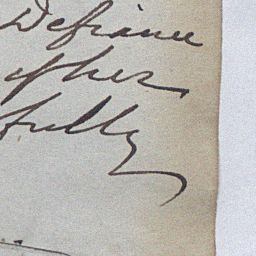 Defiance
of her
fully